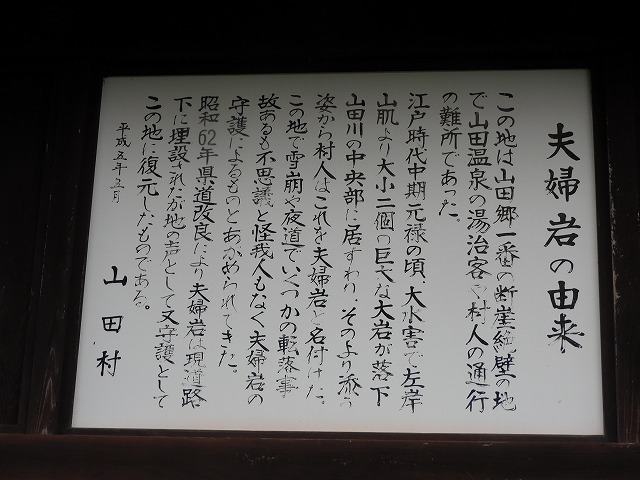 夫婦岩の由来
この地は山田郷一番の断崖絶壁の地
で山田温泉の湯治客や村人の通行
の難所であった。
江戸時代中期元禄の頃、大水害で左岸
山肌より大小二個の巨大な大岩が落下
山田川の中央部に居すわり、そのより添う
姿から村人はこれを夫婦岩と名付けた。
この地で雪崩や夜道でいくつかの転落事
故あるも不思議と怪我人もなく夫婦岩の
守護によるものとあがめられてきた。
昭和62年県道改良により夫婦岩は現道路
下に埋設されたが地の声として又守護として
この地に復元したものである。
平成五年五月
山田村